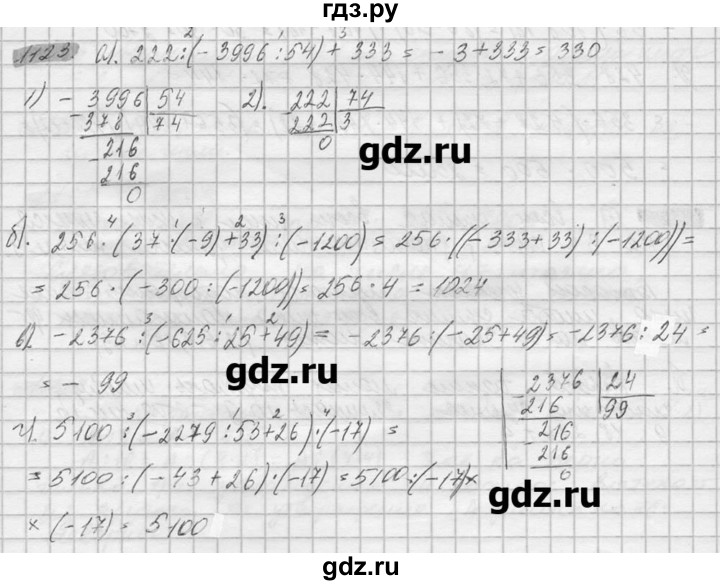 гдз.ру
1123. а). 222 : (- 3996 : 54) + 333 = - 3 + 333 = 330
1) - 3996 | 54
378 | 74
- 216
216
0
2). - 222 | 74
222 | 3
0
gdz.ru
б). 256 · (37 · (-9) + 33) : (-1200) = 256 · ((-333 + 33) : (-1200)) =
= 256 · (-300 : (-1200)) = 256 · 4 = 1024
в) -2376 : (-625 : 25 + 49) = -2376 : (-25 + 49) = -2376 : 24 =
= - 99
gdz.ru
- 2376 | 24
216 | 99
- 216
216
0
г). 5100 : (-2279 : 53 + 26) · (-17) =
= 5100 : (-43 + 26) · (-17) = 5100 : (-17) ×
× (-17) = 5100
gdz.ru
gdz.ru